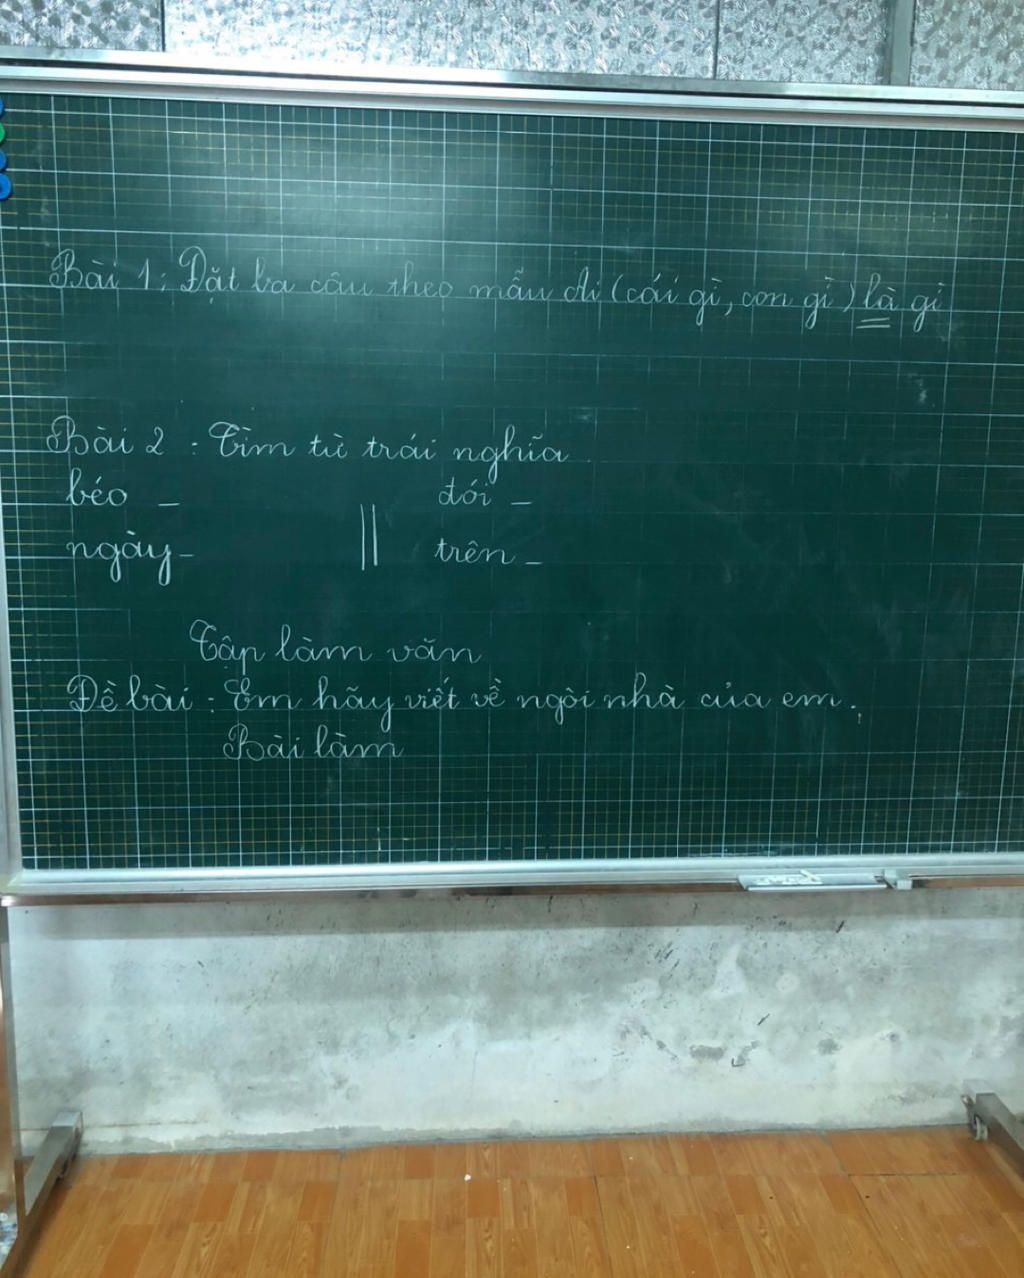 Bài 1: Đặt ba câu theo mẫu Ai (cái gì, con gì) là gì
Bài 2: Tìm từ trái nghĩa
béo - || đói -
ngày - trên -
Tập làm văn
Đề bài: Em hãy viết về ngôi nhà của em.
Bài làm